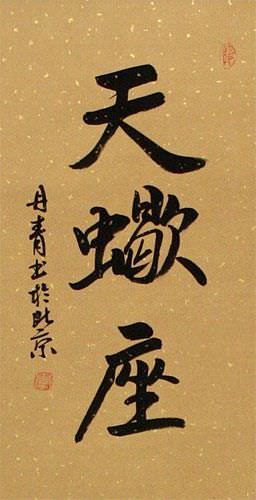 天蠍座
丹青书於北京